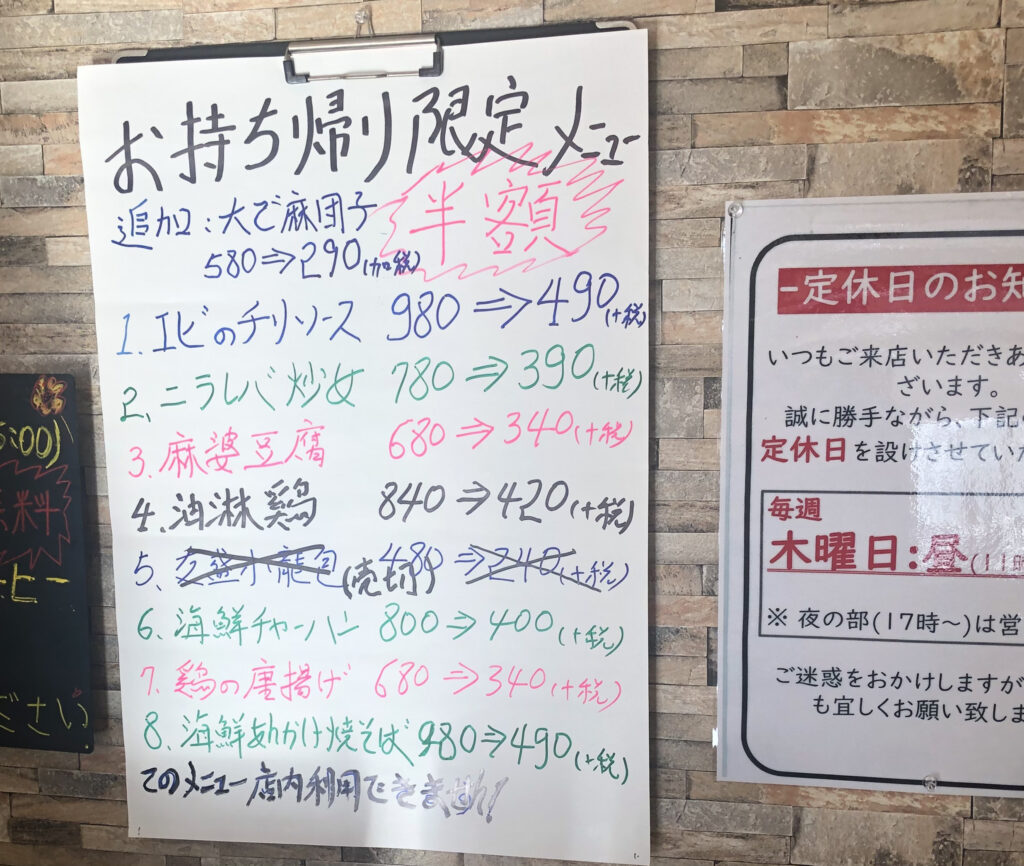 お持ち帰り限定メニュー
半額
追加:大で麻団子
580⇒290(加税)
1.エビのチリソース 980⇒490(+税)
2.ニラレバ炒女 780⇒390(+税)
3.麻婆豆腐 680⇒340(+税)
4.油淋鶏 840⇒420(+税)
5.小龍包(売切) 480⇒240(+税)
6.海鮮チャーハン 800⇒400(+税)
7.鶏の唐揚げ 680⇒340(+税)
8.海鮮あんかけ焼そば 980⇒490(+税)
てのメニュー店内利用できません!
-定休日のお知
いつもご来店いただきあ
ざいます。
誠に勝手ながら、下記
定休日を設けさせていた
毎週
木曜日:昼(11時
※ 夜の部(17時~)は営
ご迷惑をおかけしますが
も宜しくお願い致しま
:00)
料
ヒー
ださい